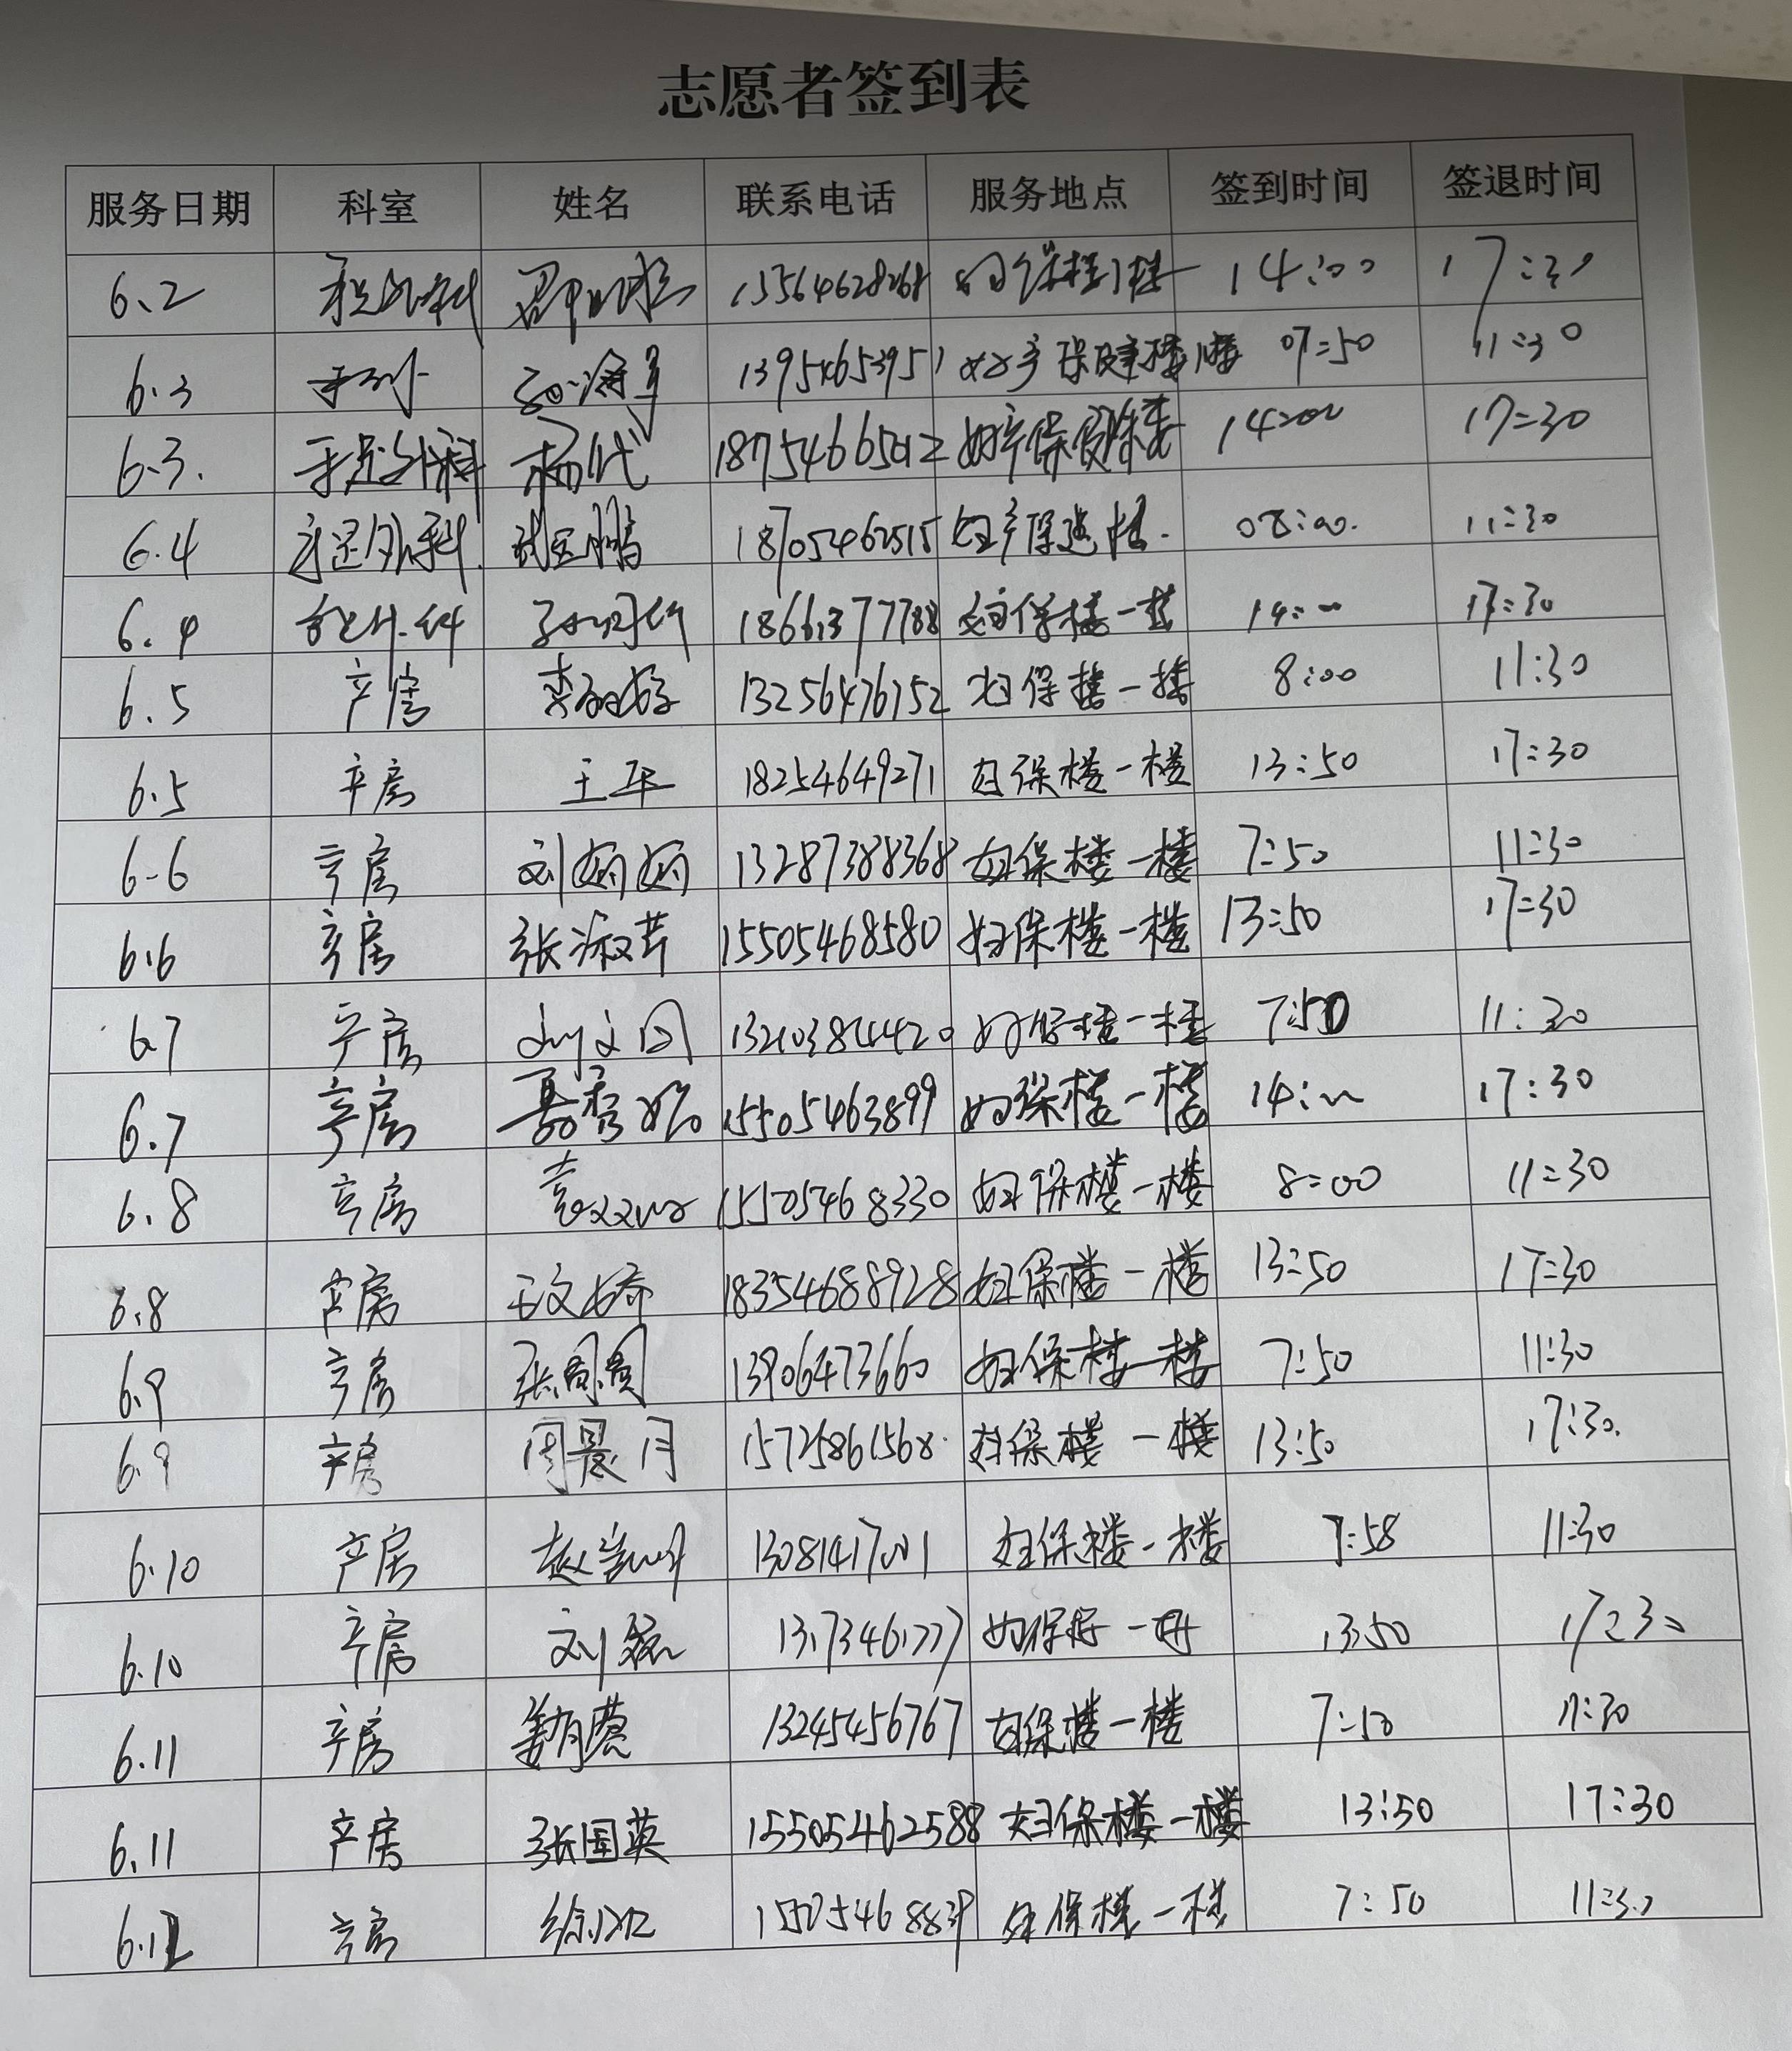 志愿者签到表
服务日期 科室 姓名 联系电话 服务地点 签到时间 签退时间
6.2 妇保楼1楼 14:00 17:30
6.3 手外 13954653951 妇产保健楼1楼 07:50 11:30
6.3. 手足外科 杨代 18754665012 14:00 17:30
6.4 手足外科. 18705462515 妇产保健楼. 08:00. 11:30
6.4 18661377788 妇保楼一楼 14:00 17:30
6.5 产房 13256476752 妇保楼一楼 8:00 11:30
6.5 产房 王平 18254649271 妇保楼一楼 13:50 17:30
6-6 产房 刘娟娟 13287388368 妇保楼一楼 7:50 11:30
6.6 产房 张淑芹 15505468580 妇保楼一楼 13:50 17:30
6.7 产房 妇保楼一楼 7:50 11:30
6.7 产房 15505463899 妇保楼一楼 14:00 17:30
6.8 产房 15505468330 妇保楼一楼 8:00 11:30
6.8 产房 王文娇 18354688928 妇保楼一楼 13:50 17:30
6.9 产房 张圆圆 13906473660 妇保楼一楼 7:50 11:30
6.9 产房 周晨月 15725861568 妇保楼一楼 13:50 17:30.
6.10 产房 13081417001 妇保楼一楼 7:58 11:30
6.10 产房 刘 妇保楼一楼 13:50 17:30
6.11 产房 13245456767 妇保楼一楼 7:50 11:30
6.11 产房 张国英 15505462588 妇保楼一楼 13:50 17:30
6.12 产房 妇保楼一楼 7:50 11:30